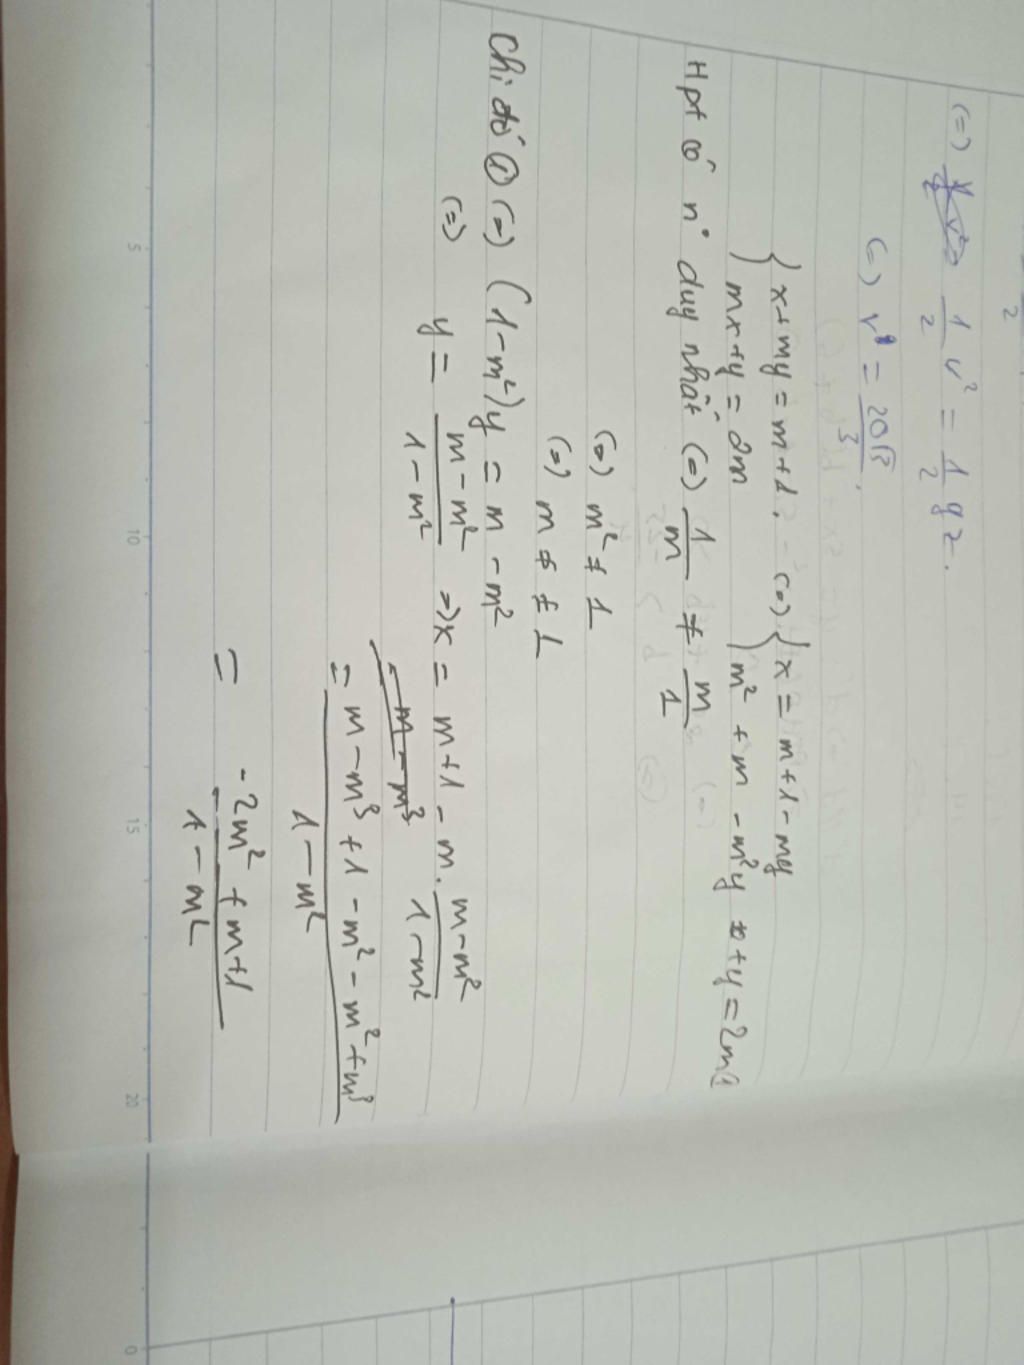 2
(=) 1/2 v² = 1/2 gz.
(=) v = 20√3/3.
{ x + my = m + 1. (=) { x = m + 1 - my
{ mx + y = 2m { m² + m - m²y + y = 2m ①
Hpt có n° duy nhất (=) 1/m ≠ m/1
(=) m² ≠ 1
(=) m ≠ ± 1
Khi đó ① (=) (1 - m²)y = m - m²
(=) y = (m - m²)/(1 - m²) => x = m + 1 - m. (m - m²)/(1 - m²)
= (m - m³ + 1 - m² - m² + m³)/(1 - m²)
= (-2m² + m + 1)/(1 - m²)
5 10 15 20 0